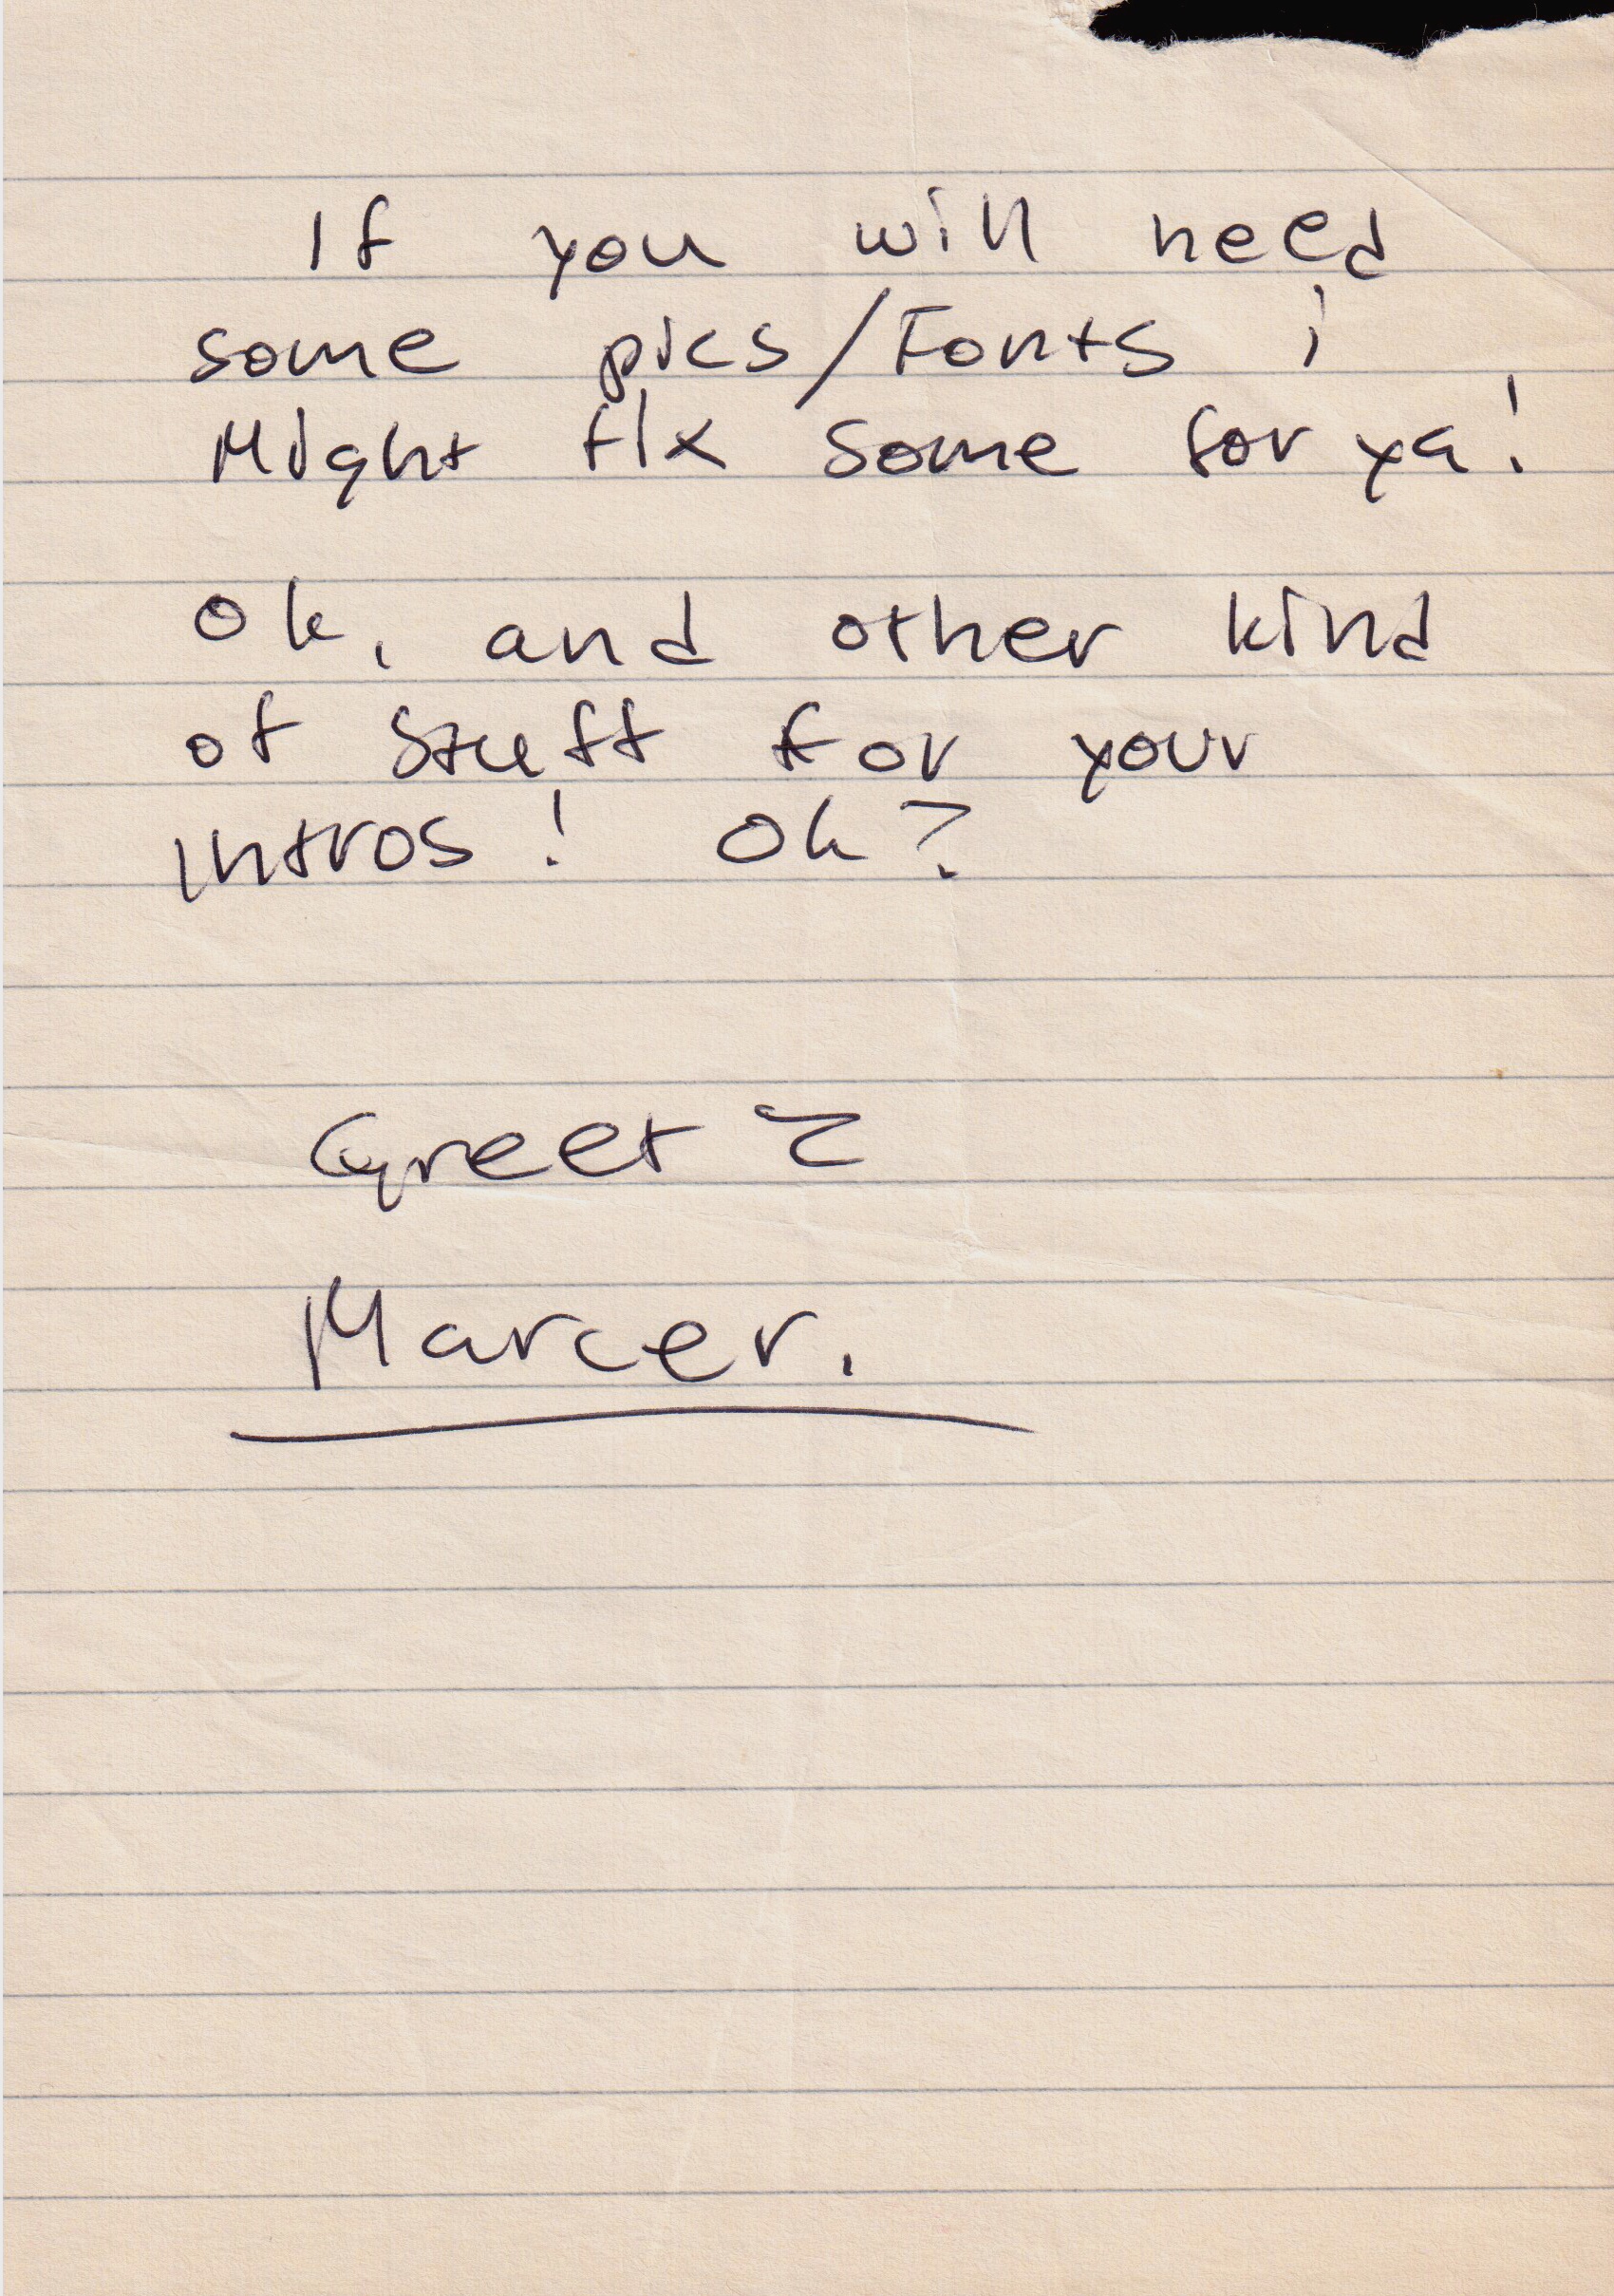 If you will need
some pics/Fonts i
Might fix some for ya!
Ok, and other kind
of stuff for your
intros! Ok?
Greetz
Marcer.